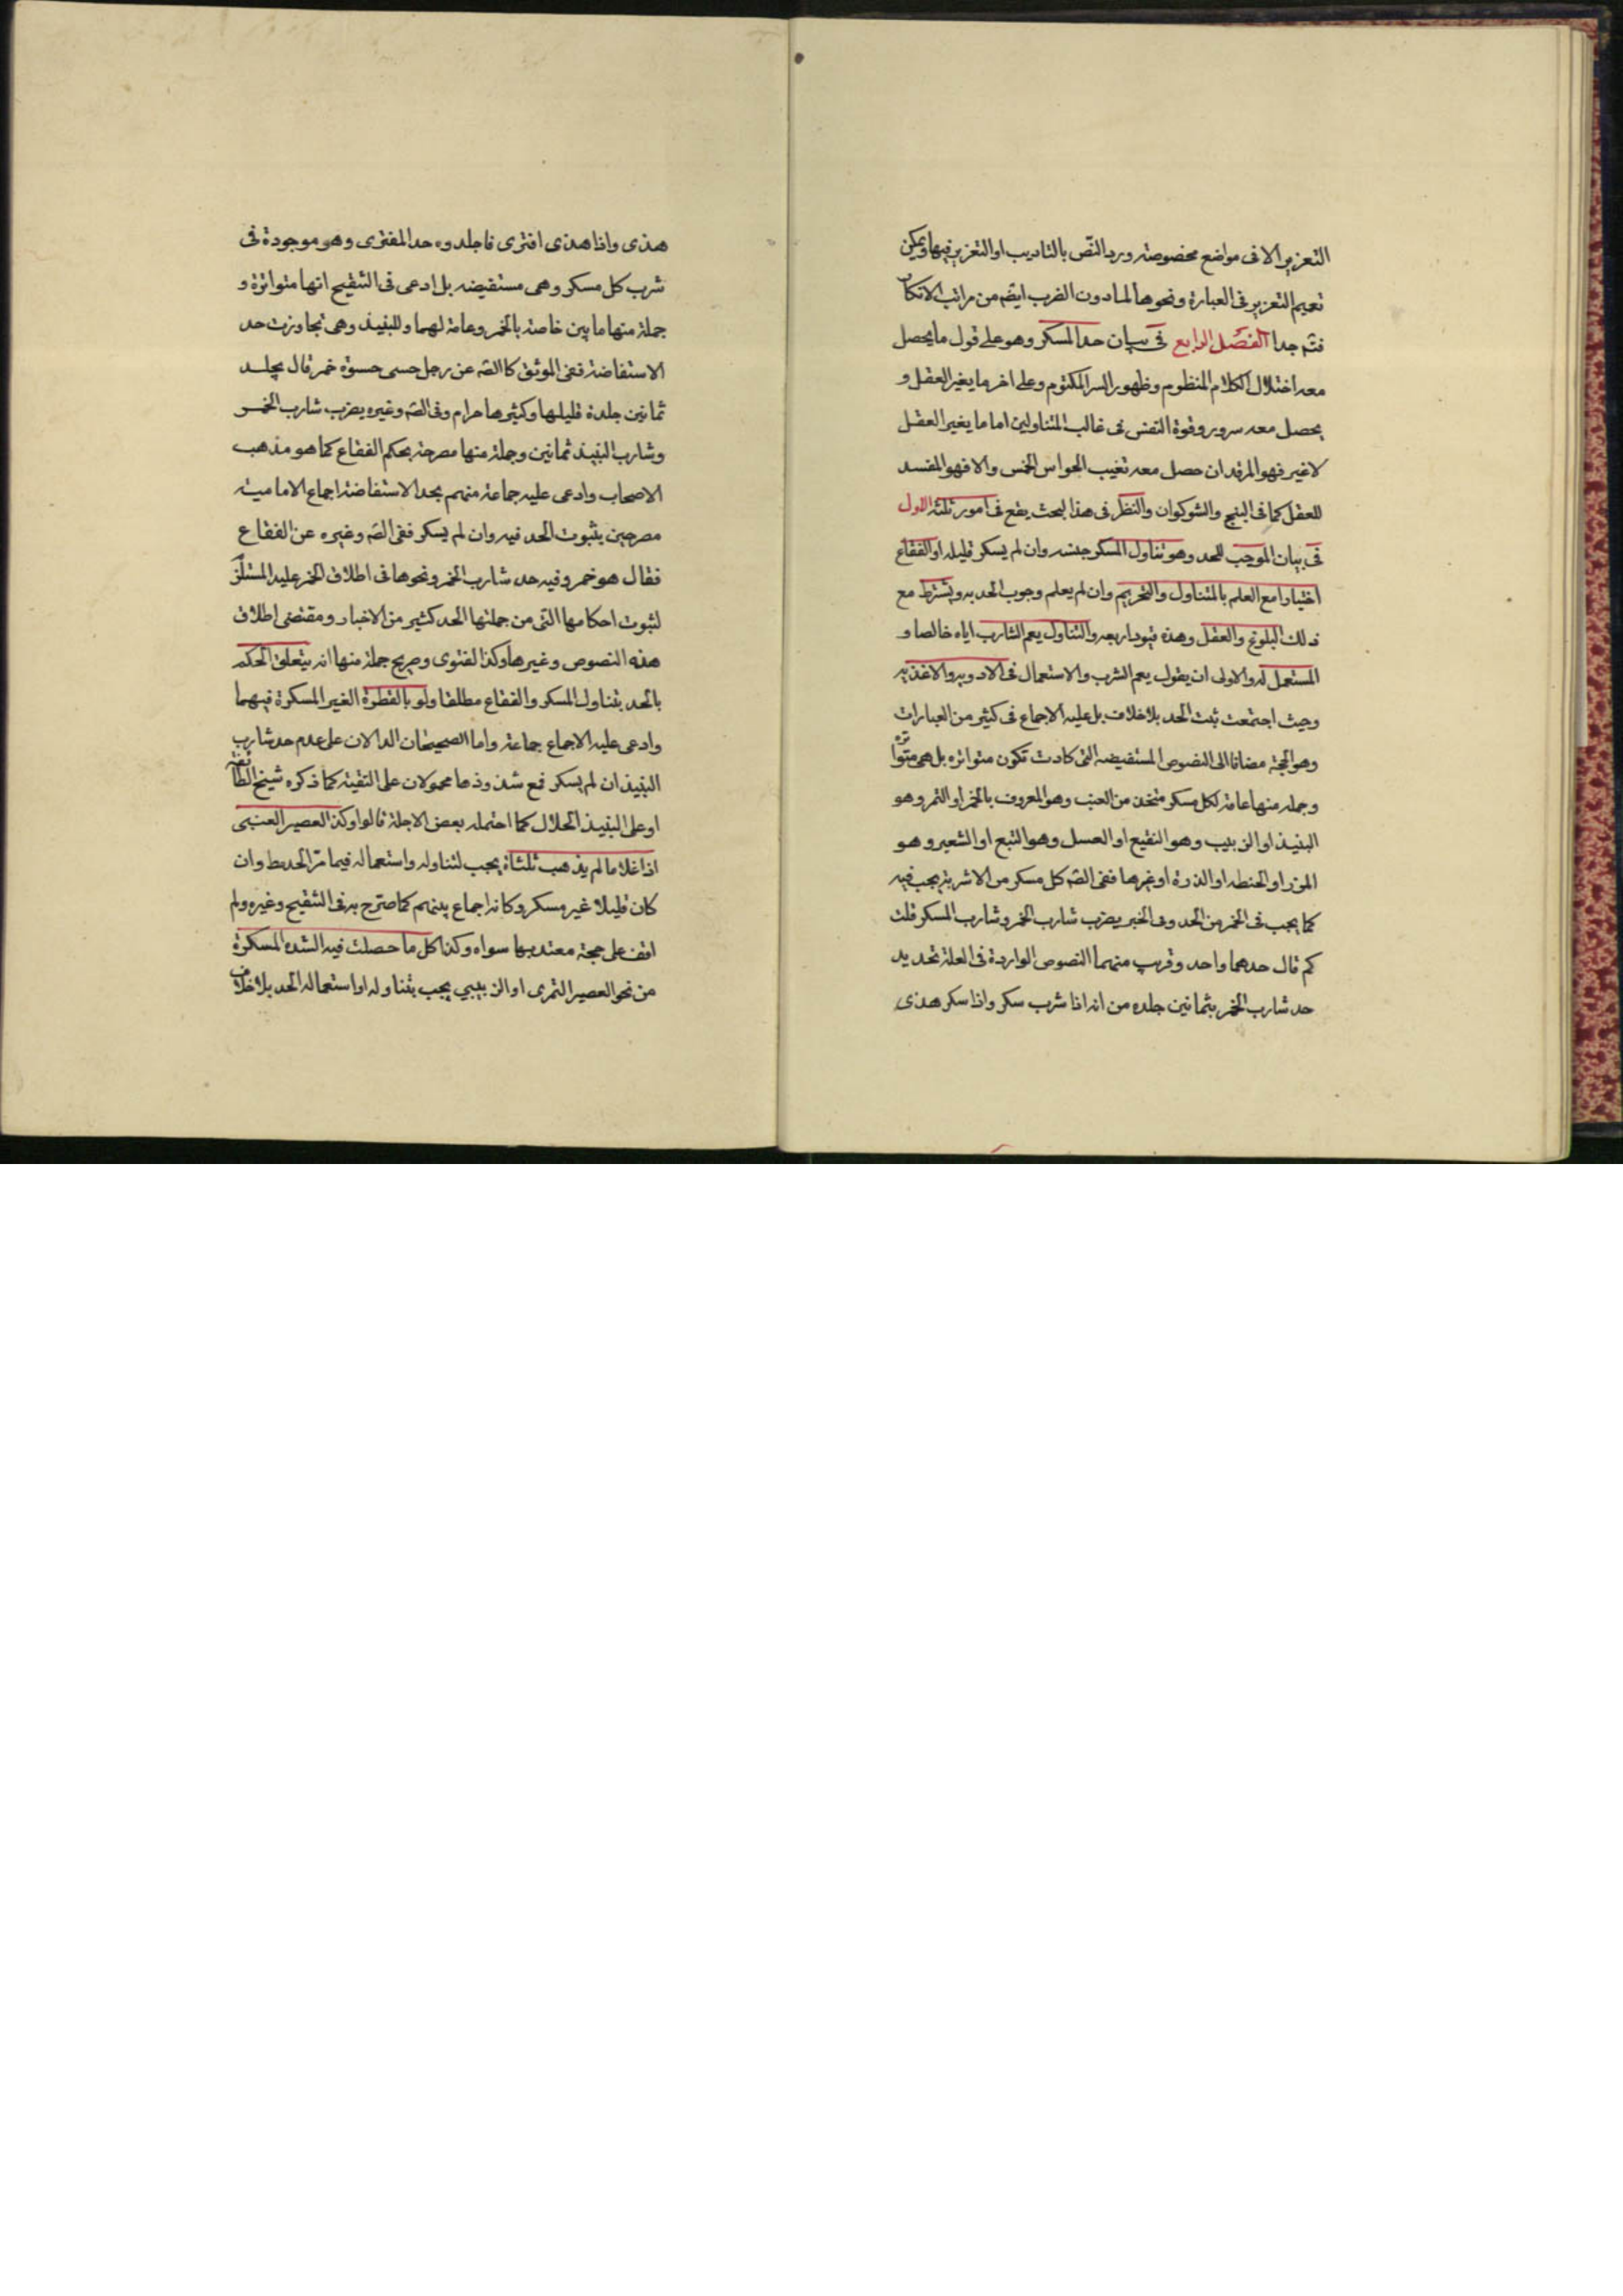 التعزير الا فى مواضع مخصوصة ورد النص بالتاديب او التعزير فيها ويمكن
تعميم التعزير فى العبارة ونحوها لما دون الضرب ايضم من مراتب الانكار
فتم جدا الفصل الرابع فى بيان حد المسكر وهو على قول ما يحصل
معه اختلال الكلام المنظوم وظهور السر المكتوم وعلى اخر ما يغير العقل و
يحصل معه سرور وقوة النفس فى غالب المتناولين اما ما يغير العقل
لا غير فهو المرقد ان حصل معه تغيب الحواس الخمس والا فهو المفسد
للعقل كما فى البنج والشوكوان والنظر فى هذا البحث يقع فى امور ثلثة الاول
فى بيان الموجب للحد وهو تناول المسكر جنسه وان لم يسكر قليله او الفقاع
اختيارا مع العلم بالمتناول والتحريم وان لم يعلم وجوب الحد به ويشترط مع
ذلك البلوغ والعقل وهذه قيود اربعه والتناول يعم الشارب اياه خالصا و
المستعمل له والاولى ان يقول يعم الشرب والاستعمال فى الادويه والاغذيه
وحيث اجتمعت ثبت الحد بلا خلاف بل عليه الاجماع فى كثير من العبارات
وهو الحجة مضافا الى النصوص المستفيضه التى كادت تكون متواتره بل هى متواتره
وجمله منها عامة لكل مسكر متخذ من العنب وهو المعروف بالخمر او التمر وهو
النبيذ او الزبيب وهو النقيع او العسل وهو التبع او الشعير وهو
المزر او الحنطه او الذرة او غيرها ففى الصم كل مسكر من الاشربة يجب فيه
كما يجب فى الخمر من الحد وفى الخبر يضرب شارب الخمر وشارب المسكر قلت
كم قال حدهما واحد وقريب منهما النصوص الواردة فى العلة تحديد
حد شارب الخمر بثمانين جلده من انه اذا شرب سكر واذا سكر هذى
هذى واذا هذى افترى فاجلدوه حد المفترى وهو موجودة فى
شرب كل مسكر وهى مستفيضه بل ادعى فى التنقيح انها متواترة و
جملة منها ما بين خاصة بالخمر وعامة لهما وللنبيذ وهى تجاوزت حد
الاستفاضة ففى الموثق كالصم عن رجل حسى حسوة خمر قال يجلد
ثمانين جلدة قليلها وكثيرها حرام وفى الصم وغيره يضرب شارب الخمر
وشارب النبيذ ثمانين وجملة منها مصرحة بحكم الفقاع كما هو مذهب
الاصحاب وادعى عليه جماعة منهم بحد الاستفاضة اجماع الامامية
مصرحين بثبوت الحد فيه وان لم يسكر ففى الصم وغيره عن الفقاع
فقال هو خمر وفيه حد شارب الخمر ونحوها فى اطلاق الخمر عليه المستلزم
لثبوت احكامها التى من جملتها الحد كثير من الاخبار ومقتضى اطلاق
هذه النصوص وغيرها وكذا الفتوى وصريح جملة منها انه يتعلق الحكم
بالحد بتناول المسكر والفقاع مطلقا ولو بالقطرة الغير المسكرة فيهما
وادعى عليه الاجماع جماعة واما الصحيحان الدالان على عدم حد شارب
النبيذ ان لم يسكر فمع شذوذهما محمولان على التقية كما ذكره شيخ الطائفة
او على النبيذ الحلال كما احتمله بعض الاجلة قالوا وكذا العصير العنبى
اذا غلا ما لم يذهب ثلثاه يجب لتناوله واستعماله فيما مر الحد بط وان
كان قليلا غير مسكر وكانه اجماع بينهم كما صرح به فى التنقيح وغيره ولم
اقف على حجة معتد بها سواه وكذا كل ما حصلت فيه الشده المسكرة
من نحو العصير التمرى او الزبيبي يجب بتناوله او استعماله الحد بلا خلاف